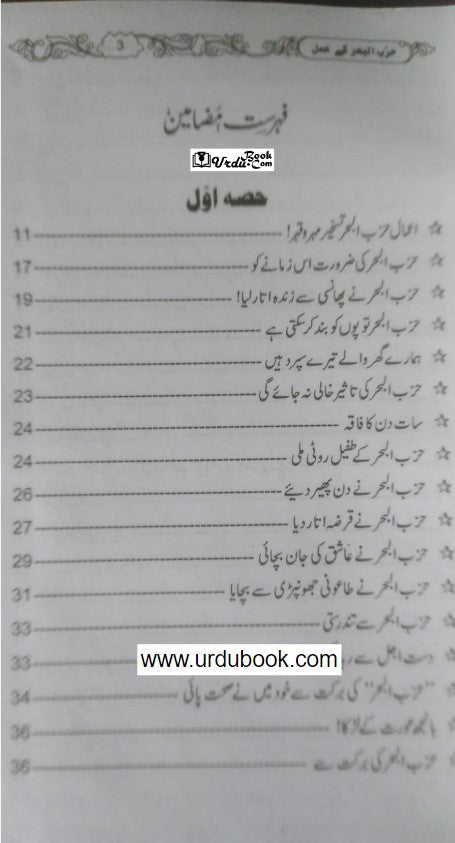 3 حزب البحر کے عمل
فہرست مضامین
UrduBook.Com
حصہ اوّل
☆ اعمال حزب البحر تسخیر مہر و قہر! 11
☆ حزب البحر کی ضرورت اس زمانے کو 17
☆ حزب البحر نے پھانسی سے زندہ اتار لیا! 19
☆ حزب البحر توپوں کو بند کر سکتی ہے 21
☆ ہمارے گھر والے تیرے سپرد ہیں 22
☆ حزب البحر کی تاثیر خالی نہ جائے گی 23
☆ سات دن کا فاقہ 24
☆ حزب البحر کے طفیل روٹی ملی 24
☆ حزب البحر نے دن پھیر دیئے 26
☆ حزب البحر نے قرضہ اتار دیا 27
☆ حزب البحر نے عاشق کی جان بچائی 29
☆ حزب البحر نے طاعونی جھونپڑی سے بچایا 31
☆ حزب البحر سے تندرستی 33
☆ دست اجل سے 33
www.urdubook.com
☆ "حزب البحر" کی برکت سے خود میں نے صحت پائی 34
☆ بانجھ عورت کے لڑکا! 36
☆ حزب البحر کی برکت سے 36